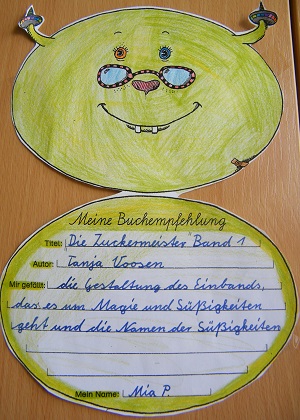 Meine Buchempfehlung
Titel: Die Zuckermeister Band 1
Autor: Tanja Voosen
Mir gefällt: die Gestaltung des Einbands,
das es um Magie und Süßigkeiten
geht und die Namen der Süßigkeiten
Mein Name: Mia P.